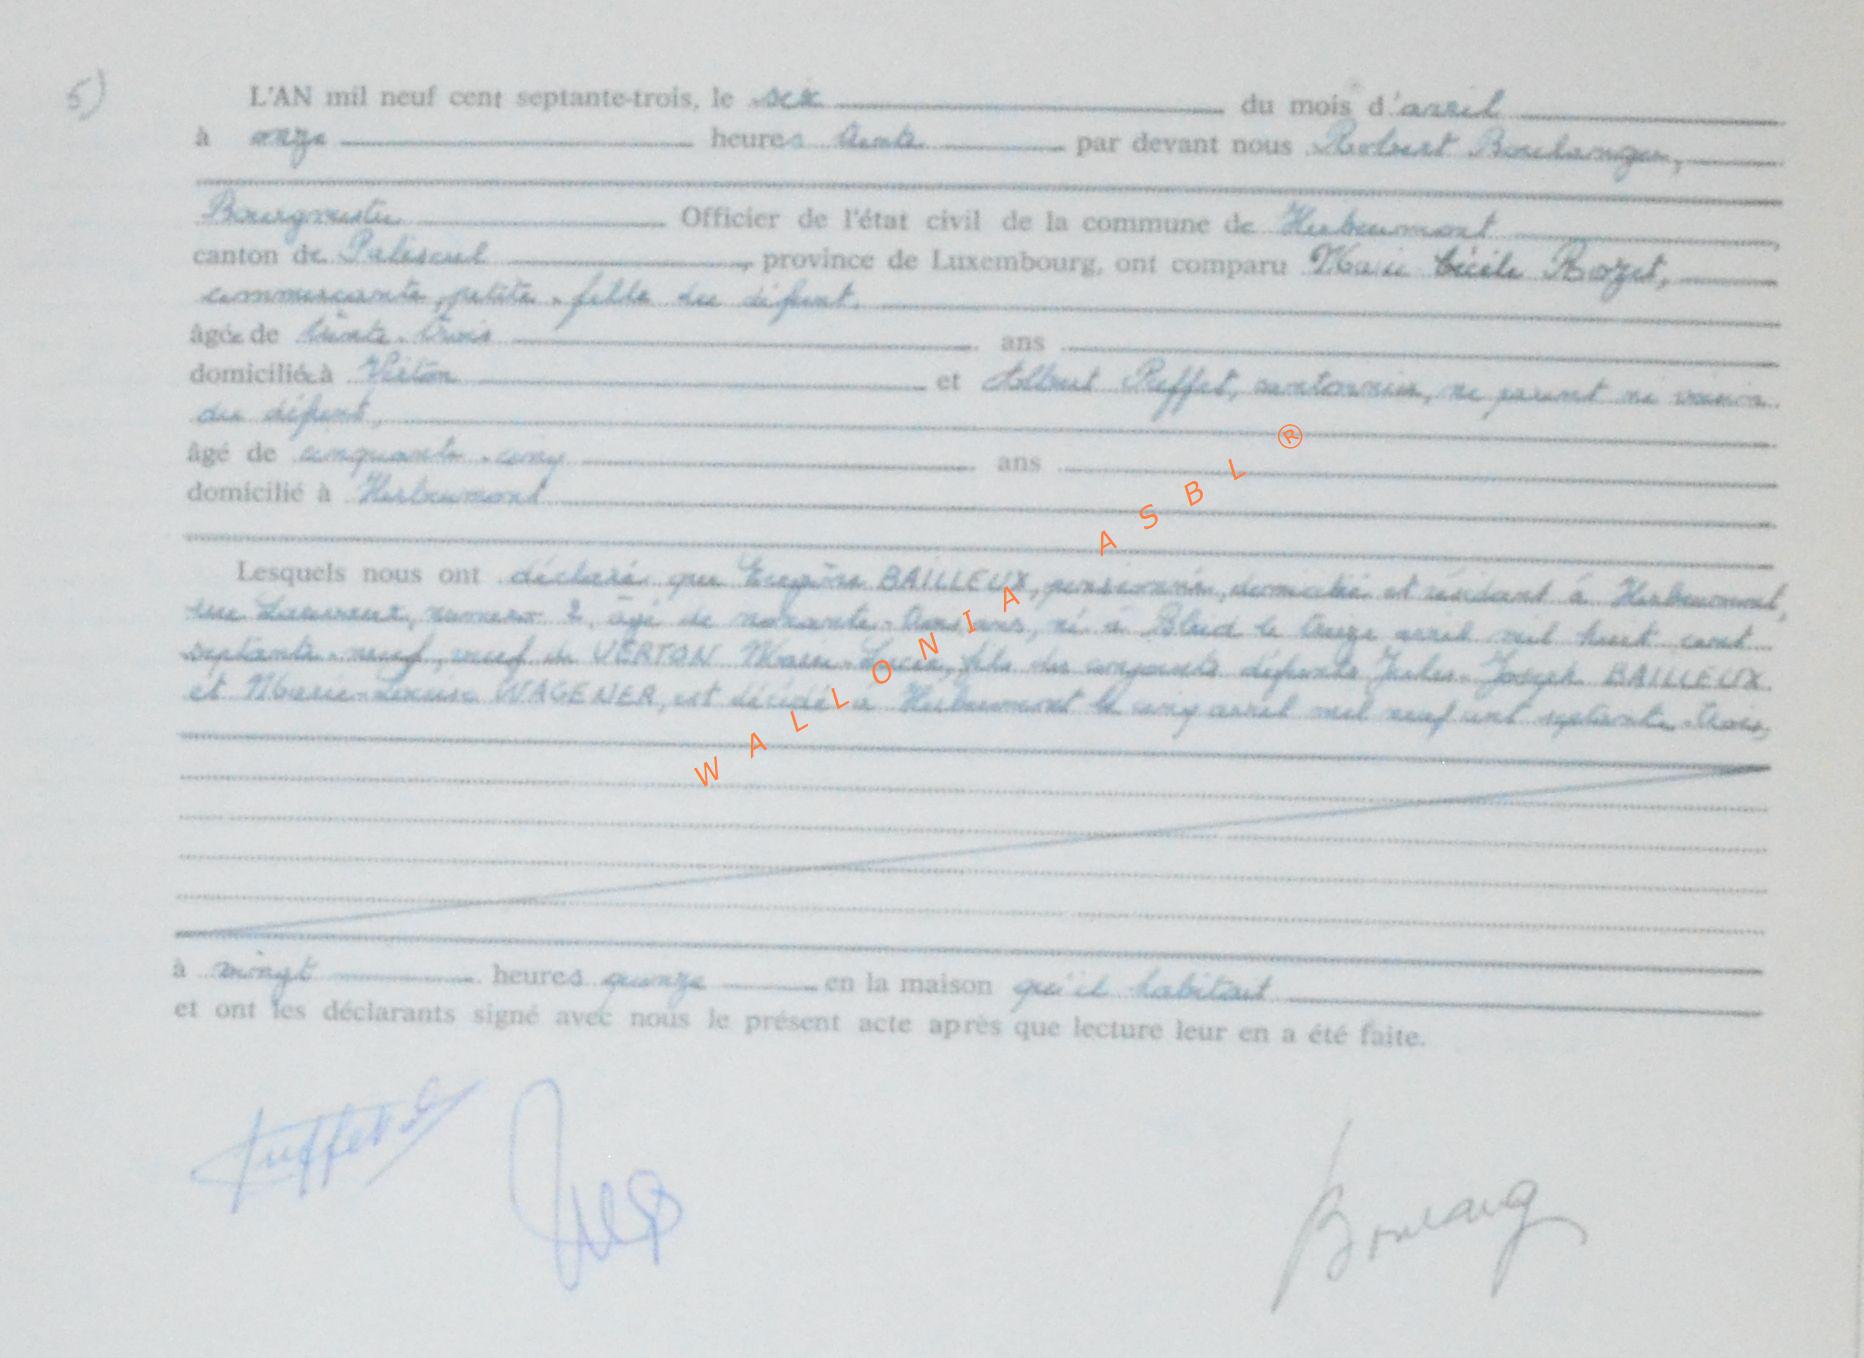 5)
L'AN mil neuf cent septante-trois, le six du mois d'avril
à onze heures trente par devant nous Robert Boulanger,
Bourgmestre Officier de l'état civil de la commune de Herbeumont
canton de Paliseul, province de Luxembourg, ont comparu Marie Cécile Rozet,
commerçante, petite-fille du défunt,
âgée de trente-trois ans
domiciliée à Virton et Albert Puffet, cantonnier, ni parent ni voisin
du défunt,
âgé de cinquante-cinq ans
domicilié à Herbeumont
Lesquels nous ont déclaré que Eugène BAILLEUX, pensionné, domicilié et résidant à Herbeumont,
rue Lauvaux, numéro 2, âgé de nonante-trois ans, né à Bleid le treize avril mil huit cent
septante-neuf, veuf de VERTON Marie-Lucie, fils des conjoints défunts Jules-Joseph BAILLEUX
et Marie-Louise WAGENER, est décédé à Herbeumont le cinq avril mil neuf cent septante-trois,
à vingt heures quinze en la maison qu'il habitait
et ont les déclarants signé avec nous le présent acte après que lecture leur en a été faite.
WALLONIA ASBL ®
Puffet
Boulang